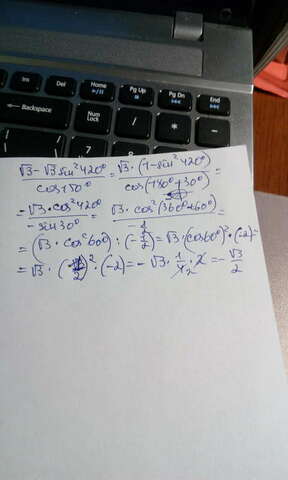 Ins Del Home Pg Up Pg Dn End
Backspace / * -
√3 - √3 sin² 420° / cos 150° = √3 · (1 - sin² 420°) / cos (180° + 30°) =
= √3 · cos² 420° / - sin 30° = √3 · cos² (360° + 60°) / - =
= (√3 · cos² 60°) : (- 1/2) = √3 · (cos 60°)² · (-2) =
= √3 · ( /2)² · (-2) = - √3 · 1/4 2 · 2 = - √3/2